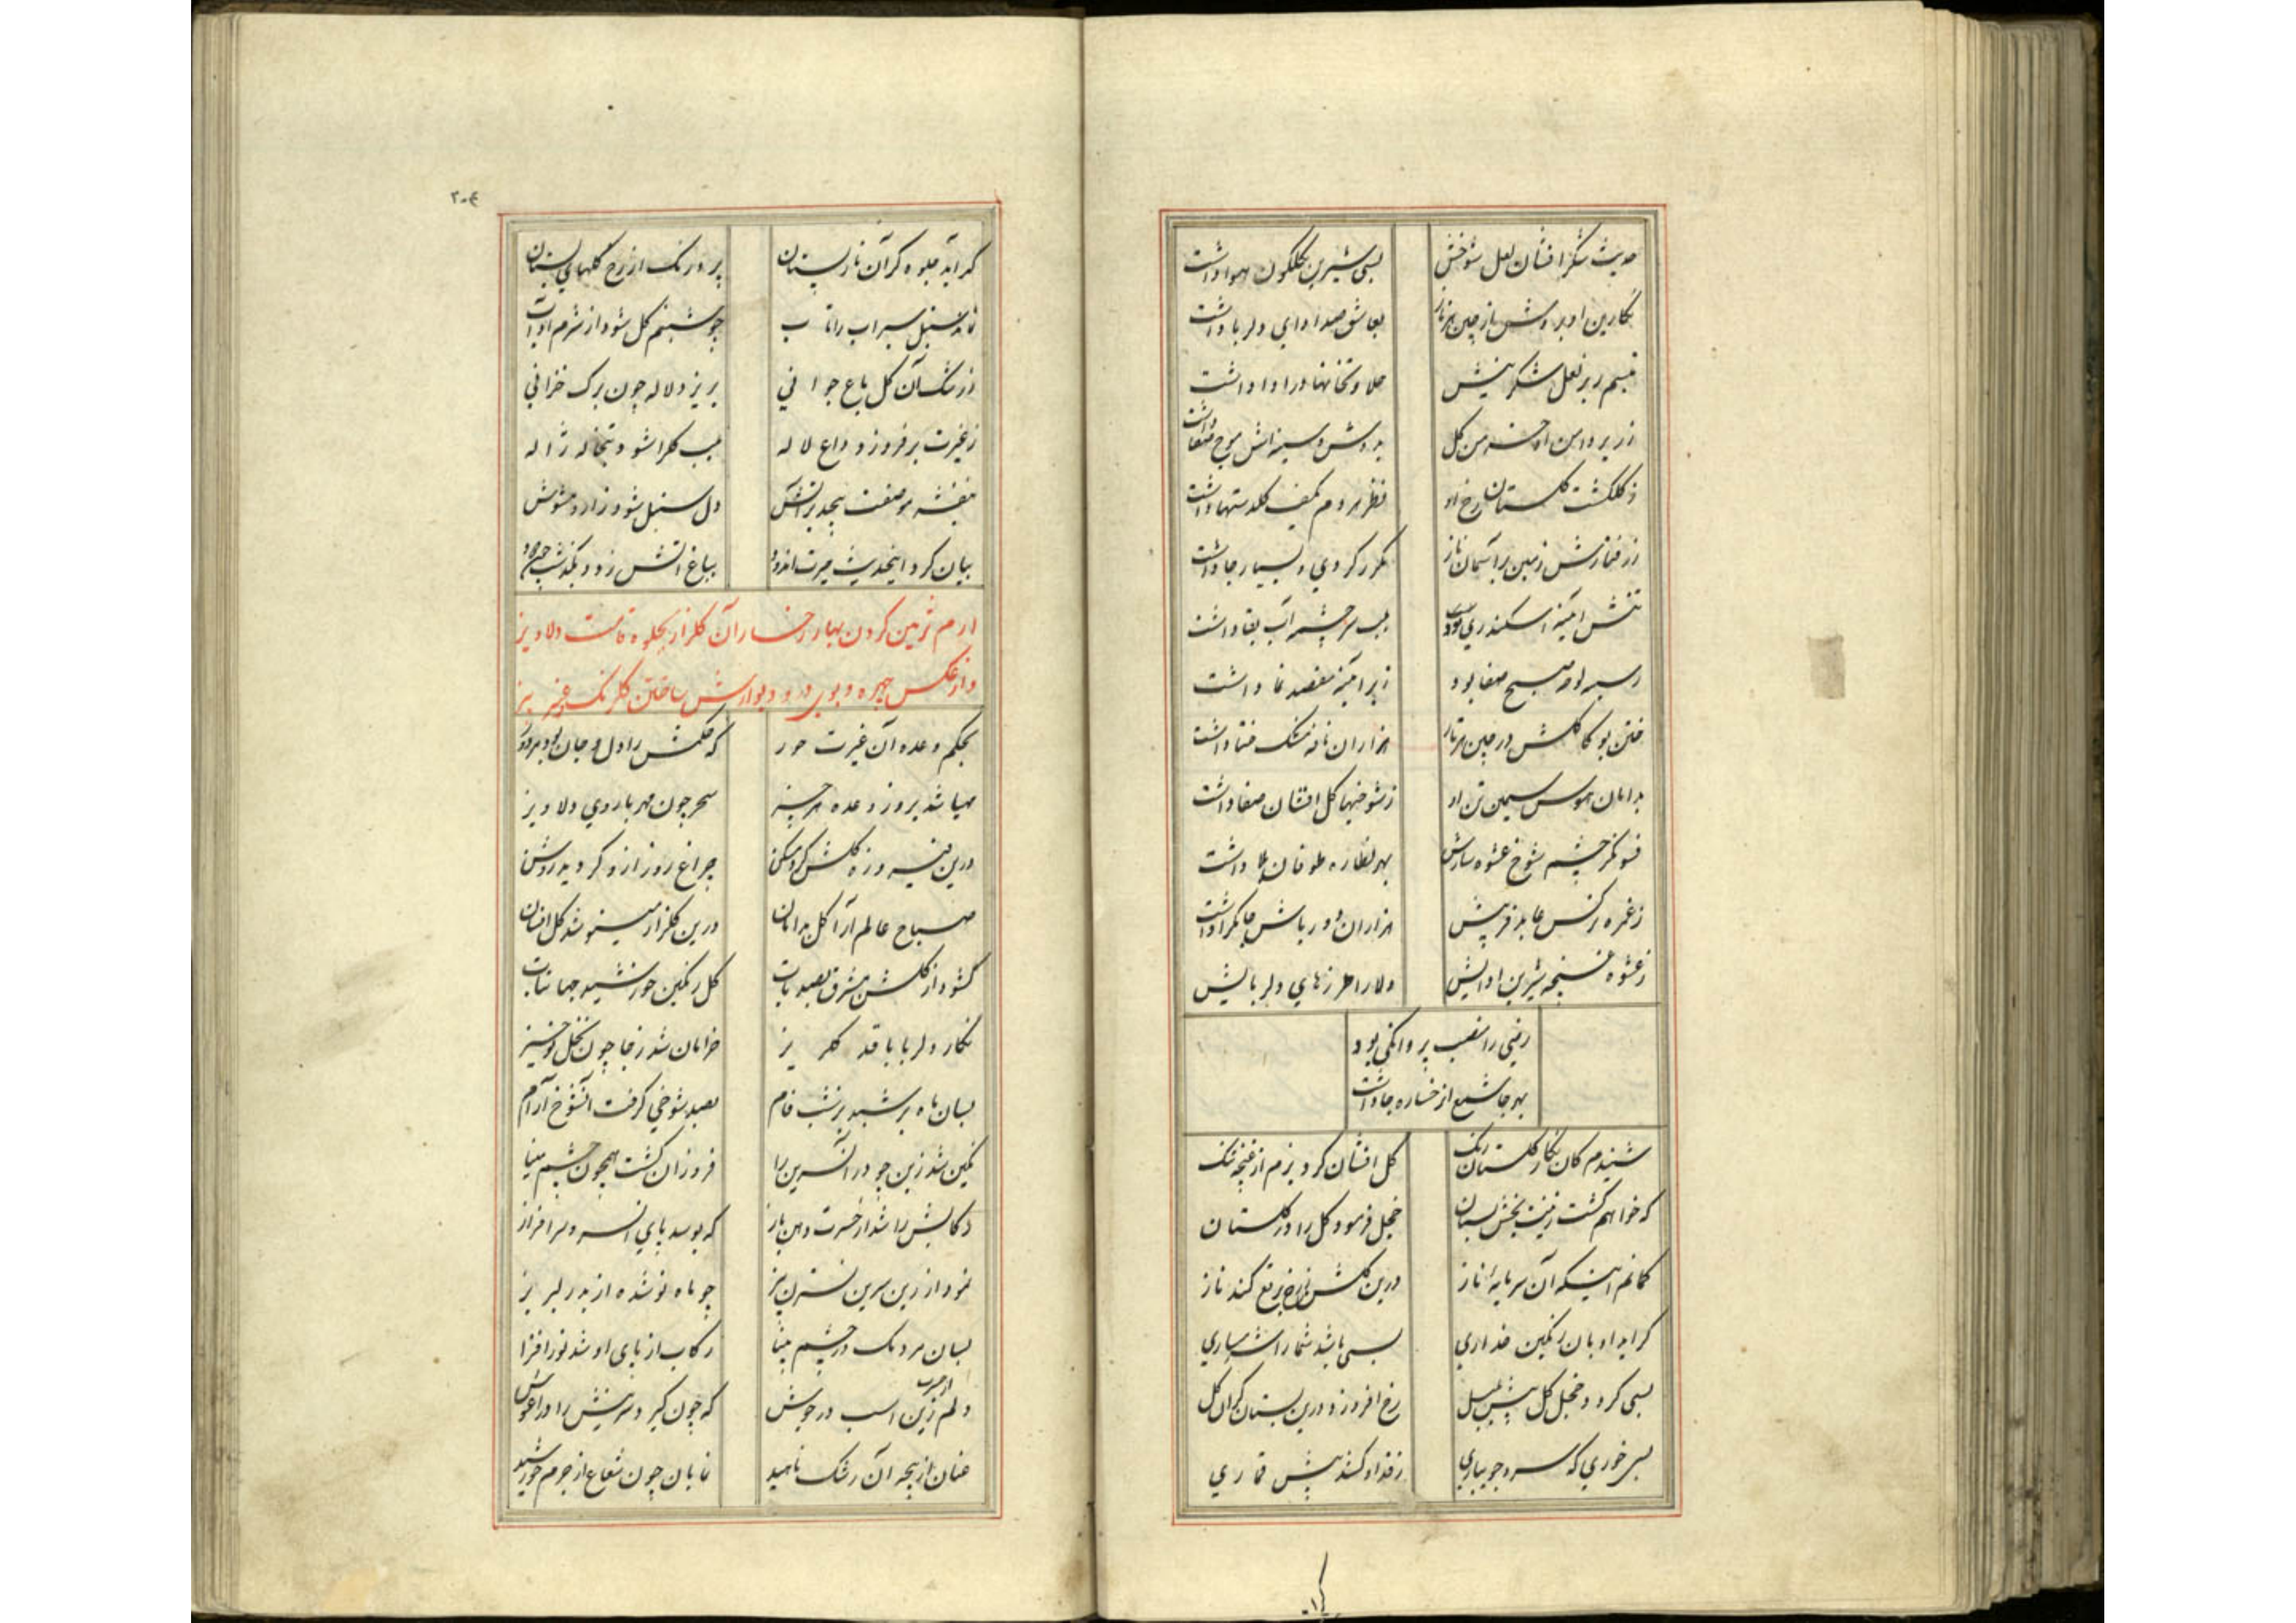 حدیث شکر افشان لعل شوخش بسی شیرین بگلگون هوا داشت
نگارین ابرویش از چین هر ناز بعاشق صد ادای دلربا داشت
تبسم ریز لعل شکرینش حلاوتخانها در ادا داشت
زیر دامن او خرمن گل بدوش و سینه اش موج صفا داشت
ز گلگشت گلستان رخ او نظر هر دم بکف گلدستها داشت
ز رفتارش زمین بر آسمان ناز مکرر کردی و بسیار جا داشت
تنش آئینه اسکندری بود بلب سرچشمه آب بقا داشت
سرین لوح صبح صفا بود زیر آئینه مقصد نما داشت
ختن بو کاکلش در چین هر تار هزاران نافه مشک ختا داشت
بدامان هوس سیمین تن او ز شوخیها گل افشان صفا داشت
فسونگر چشم شوخ عشوه سازش بهر نظاره طوفان بلا داشت
ز غمزه نرگس عابد فریبش هزاران دورباش جا بجا داشت
ز عشوه غنچه شیرین ادایش دلارا طرزهای دلربایش
رضی را منصب پروانگی بود
بهر جا شمع از رخساره جا داشت
شنیدم کان نگار گلستان رنگ گل افشان کرد بزم از غنچه تنگ
که خواهم گشت زینت بخش بستان خجل فرمود گل را در گلستان
گمانم اینکه آن سرمایه ناز درین گلشن ز رخ برقع کند باز
گر آید او بآن رنگین عذاری بسی باشد شما را شرمساری
بسی گردد خجل گل پیش بلبل رخ افروزد درین بستان گر آن گل
بسی خواری که سرو جویباری ز قد او کشد پیش قماری
۲۰۴
گر آید جلوه گر آن ناز بستان پرد رنگ از رخ گلهای بستان
نماند سنبل سیراب را تاب چو شبنم گل شود از شرم او آب
ز رشک آن گل باغ جوانی بریزد لاله چون برگ خزانی
ز غیرت برفروزد داغ لاله بلب گل را شود تبخاله ژاله
بنفشه مو صفت پیچد بر آتش دل سنبل شود زار و مشوش
بیان کرد اینحدیث حیرت اندود بباغ آتش زد و بگذشت چون دود
ارم تزیین کردن بهار رخسار آن گلزار بجلوه قامت دلاویز
و از عکس چهره و بوی در و دیوارش ساختن گلرنگ و عنبر بیز
بحکم وعده آن غیرت حور که حکمش را دل و جان بود مزدور
مهیا شد بروز وعده هر چیز سحر چون مهر با روی دلاویز
درین فیروزه گلشن کرد مسکن چراغ روز ازو گردید روشن
صباح عالم آرا گل بدامان درین گلزار مینو شد گل افشان
گشود از گلشن مشرق بصد باب گل رنگین خورشید جهانتاب
نگار دلربا با قد گلریز خرامان شد ز جا چون نخل نوخیز
بسان ماه بر شبدیز شب فام بصد شوخی گرفت آنشوخ آرام
نگین شد زین چو در آن سرین را فروزان گشت همچون چشم مینا
رکابش را شد از حسرت دهن باز که بوسد پای آن سرو سرافراز
نمود از زین سرین نسترن بیز چو ماه نو شده از بدر لبریز
بسان مردمک در چشم بینا رکاب از پای او شد نور افزا
دلم از حسرت زین اسب در جوش که چون گیرد سرینش را در آغوش
عنان از پنجه آن رشک ناهید نمایان چون شعاع از جرم خورشید